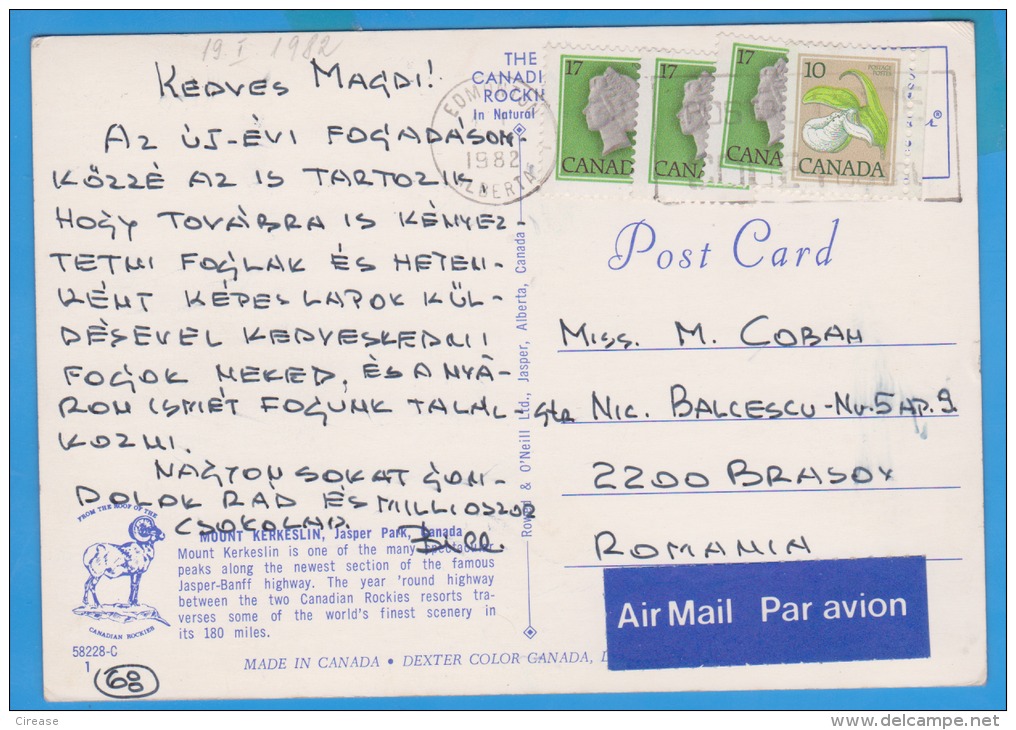 19.I.1982
KEDVES MAGDI!
AZ ÚJ-ÉVI FOGADASOM-
KÖZZÉ AZ IS TARTOZIK
HOGY TOVÁBRA IS KÉNYEZ-
TETNI FOGLAK ÉS HETEN-
KÉNT KÉPESLAPOK KÜL-
DÉSÉVEL KEDVESKEDNI
FOGOK NEKED, ÉS A NYÁ-
RON ISMÉT FOGUNK TALÁL-
KOZNI.
NAGYON SOKAT GON-
DOLOK RÁD ÉS MILLIOSZOR
CSOKOLAD.
Bill.
FROM THE ROOF OF THE
CANADIAN ROCKIES
MOUNT KERKESLIN, Jasper Park, Canada
Mount Kerkeslin is one of the many spectacular
peaks along the newest section of the famous
Jasper-Banff highway. The year 'round highway
between the two Canadian Rockies resorts tra-
verses some of the world's finest scenery in
its 180 miles.
58228-C
1
68
MADE IN CANADA • DEXTER COLOR CANADA,
THE
CANADI
ROCKI
In Natural
Rowed & O'Neill Ltd., Jasper, Alberta, Canada
EDMONTON
1982
ALBERTA
17
CANAD
17
CANA
17
CANA
10
POSTAGE
POSTES
CANADA
Post Card
MISS. M. COBAN
STR NIC. BALCESCU-NV.5 AP.9
2200 BRASOV
ROMANIA
Air Mail Par avion
Cirease
www.delcampe.net